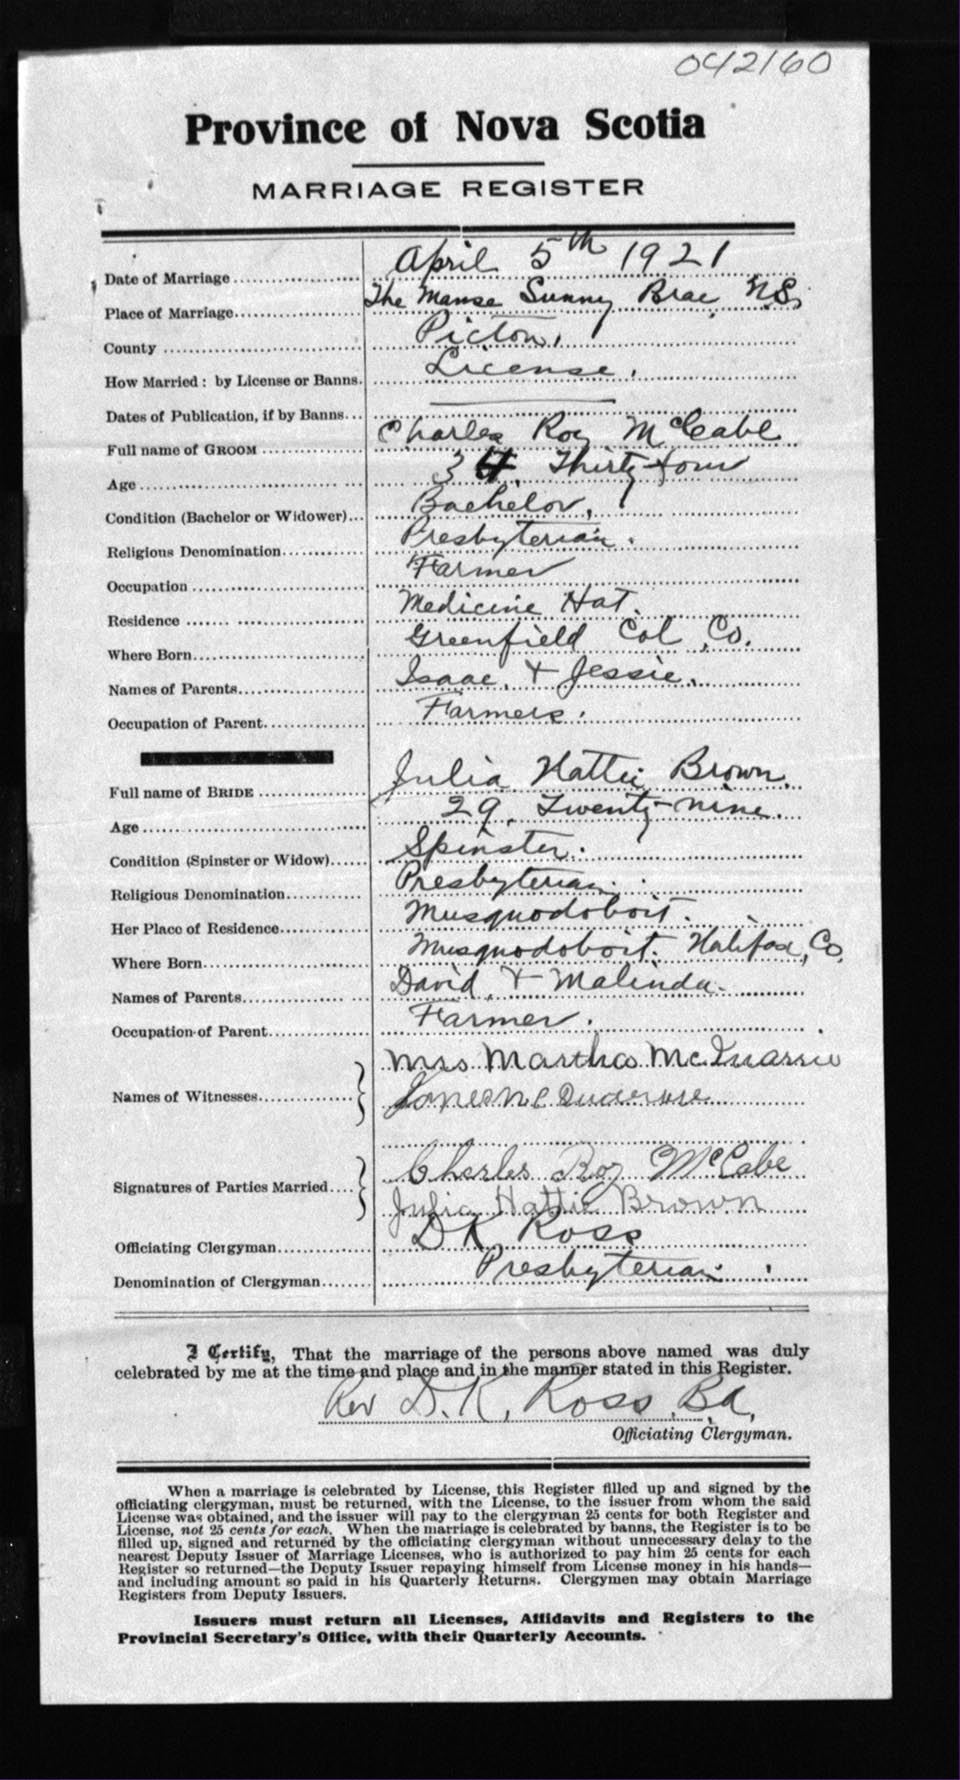 042160
Province of Nova Scotia
MARRIAGE REGISTER
Date of Marriage April 5th 1921
Place of Marriage The Manse Sunny Brae, N.S.
County Pictou,
How Married: by License or Banns. License.
Dates of Publication, if by Banns
Full name of GROOM Charles Roy McCabe
Age 34. Thirty four
Condition (Bachelor or Widower) Bachelor.
Religious Denomination Presbyterian.
Occupation Farmer
Residence Medicine Hat.
Where Born Greenfield Col. Co.
Names of Parents Isaac, + Jessie.
Occupation of Parent Farmers.
Full name of BRIDE Julia Hattie Brown.
Age 29. Twenty-nine.
Condition (Spinster or Widow) Spinster.
Religious Denomination Presbyterian.
Her Place of Residence Musquodoboit.
Where Born Musquodoboit. Halifax, Co.
Names of Parents David, + Malinda.
Occupation of Parent Farmer.
Mrs Martha
Names of Witnesses
Charles Roy McCabe
Signatures of Parties Married
Julia Hattie Brown
Officiating Clergyman D K Ross
Denomination of Clergyman Presbyterian.
I Certify, That the marriage of the persons above named was duly
celebrated by me at the time and place and in the manner stated in this Register.
Rev D. K. Ross, B.A.,
Officiating Clergyman.
When a marriage is celebrated by License, this Register filled up and signed by the
officiating clergyman, must be returned, with the License, to the issuer from whom the said
License was obtained, and the issuer will pay to the clergyman 25 cents for both Register and
License, not 25 cents for each. When the marriage is celebrated by banns, the Register is to be
filled up, signed and returned by the officiating clergyman without unnecessary delay to the
nearest Deputy Issuer of Marriage Licenses, who is authorized to pay him 25 cents for each
Register so returned—the Deputy Issuer repaying himself from License money in his hands—
and including amount so paid in his Quarterly Returns. Clergymen may obtain Marriage
Registers from Deputy Issuers.
Issuers must return all Licenses, Affidavits and Registers to the
Provincial Secretary's Office, with their Quarterly Accounts.